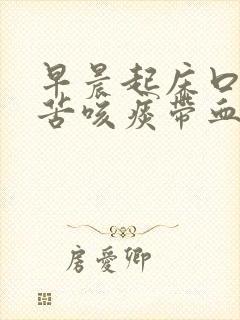 早晨起床口
苦咳痰带血
房爱卿